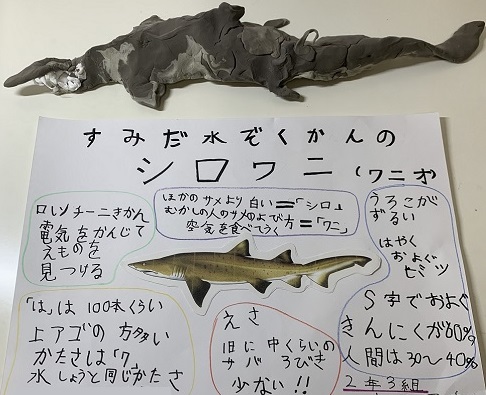 すみだ水ぞくかんの
シロワニ (ワニオ)
ロレンチーニきかん
電気をかんじて
えものを
見つける
ほかのサメより白い=「シロ」
むかしの人のサメのよび方=「ワニ」
空気を食べてうく
うろこが
ずるい
はやく
およぐ
ヒミツ
「は」は 100本くらい
上アゴの方多い
かたさは「7」
水しょうと同じかたさ
えさ
1日に中くらいの
サバ 3びき
少ない!!
S字でおよぐ
きんにくが60%
人間は30〜40%
2年3組